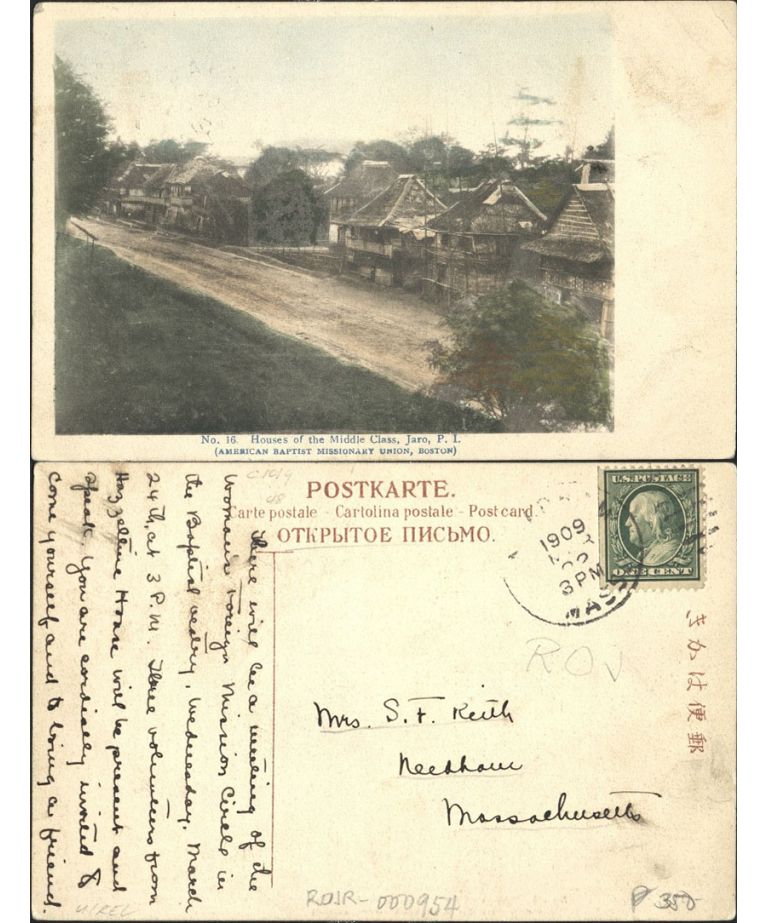 No. 16. Houses of the Middle Class, Jaro, P. I.
(AMERICAN BAPTIST MISSIONARY UNION, BOSTON)
POSTKARTE.
Carte postale - Cartolina postale - Postcard.
ОТКРЫТОЕ ПИСЬМО.
きかは便郵
U.S. POSTAGE
ONE CENT
1909
3 PM
MASS
There will be a meeting of the
Woman's Foreign Mission Circle in
the Baptist vestry, Wednesday, March
24th, at 3 P.M. Three volunteers from
Hazzeltine House will be present and
speak. You are cordially invited to
come yourself and to bring a friend.
Mrs. S. F. Keith
Needham
Massachusetts
ROJ
ROJR-000954
350